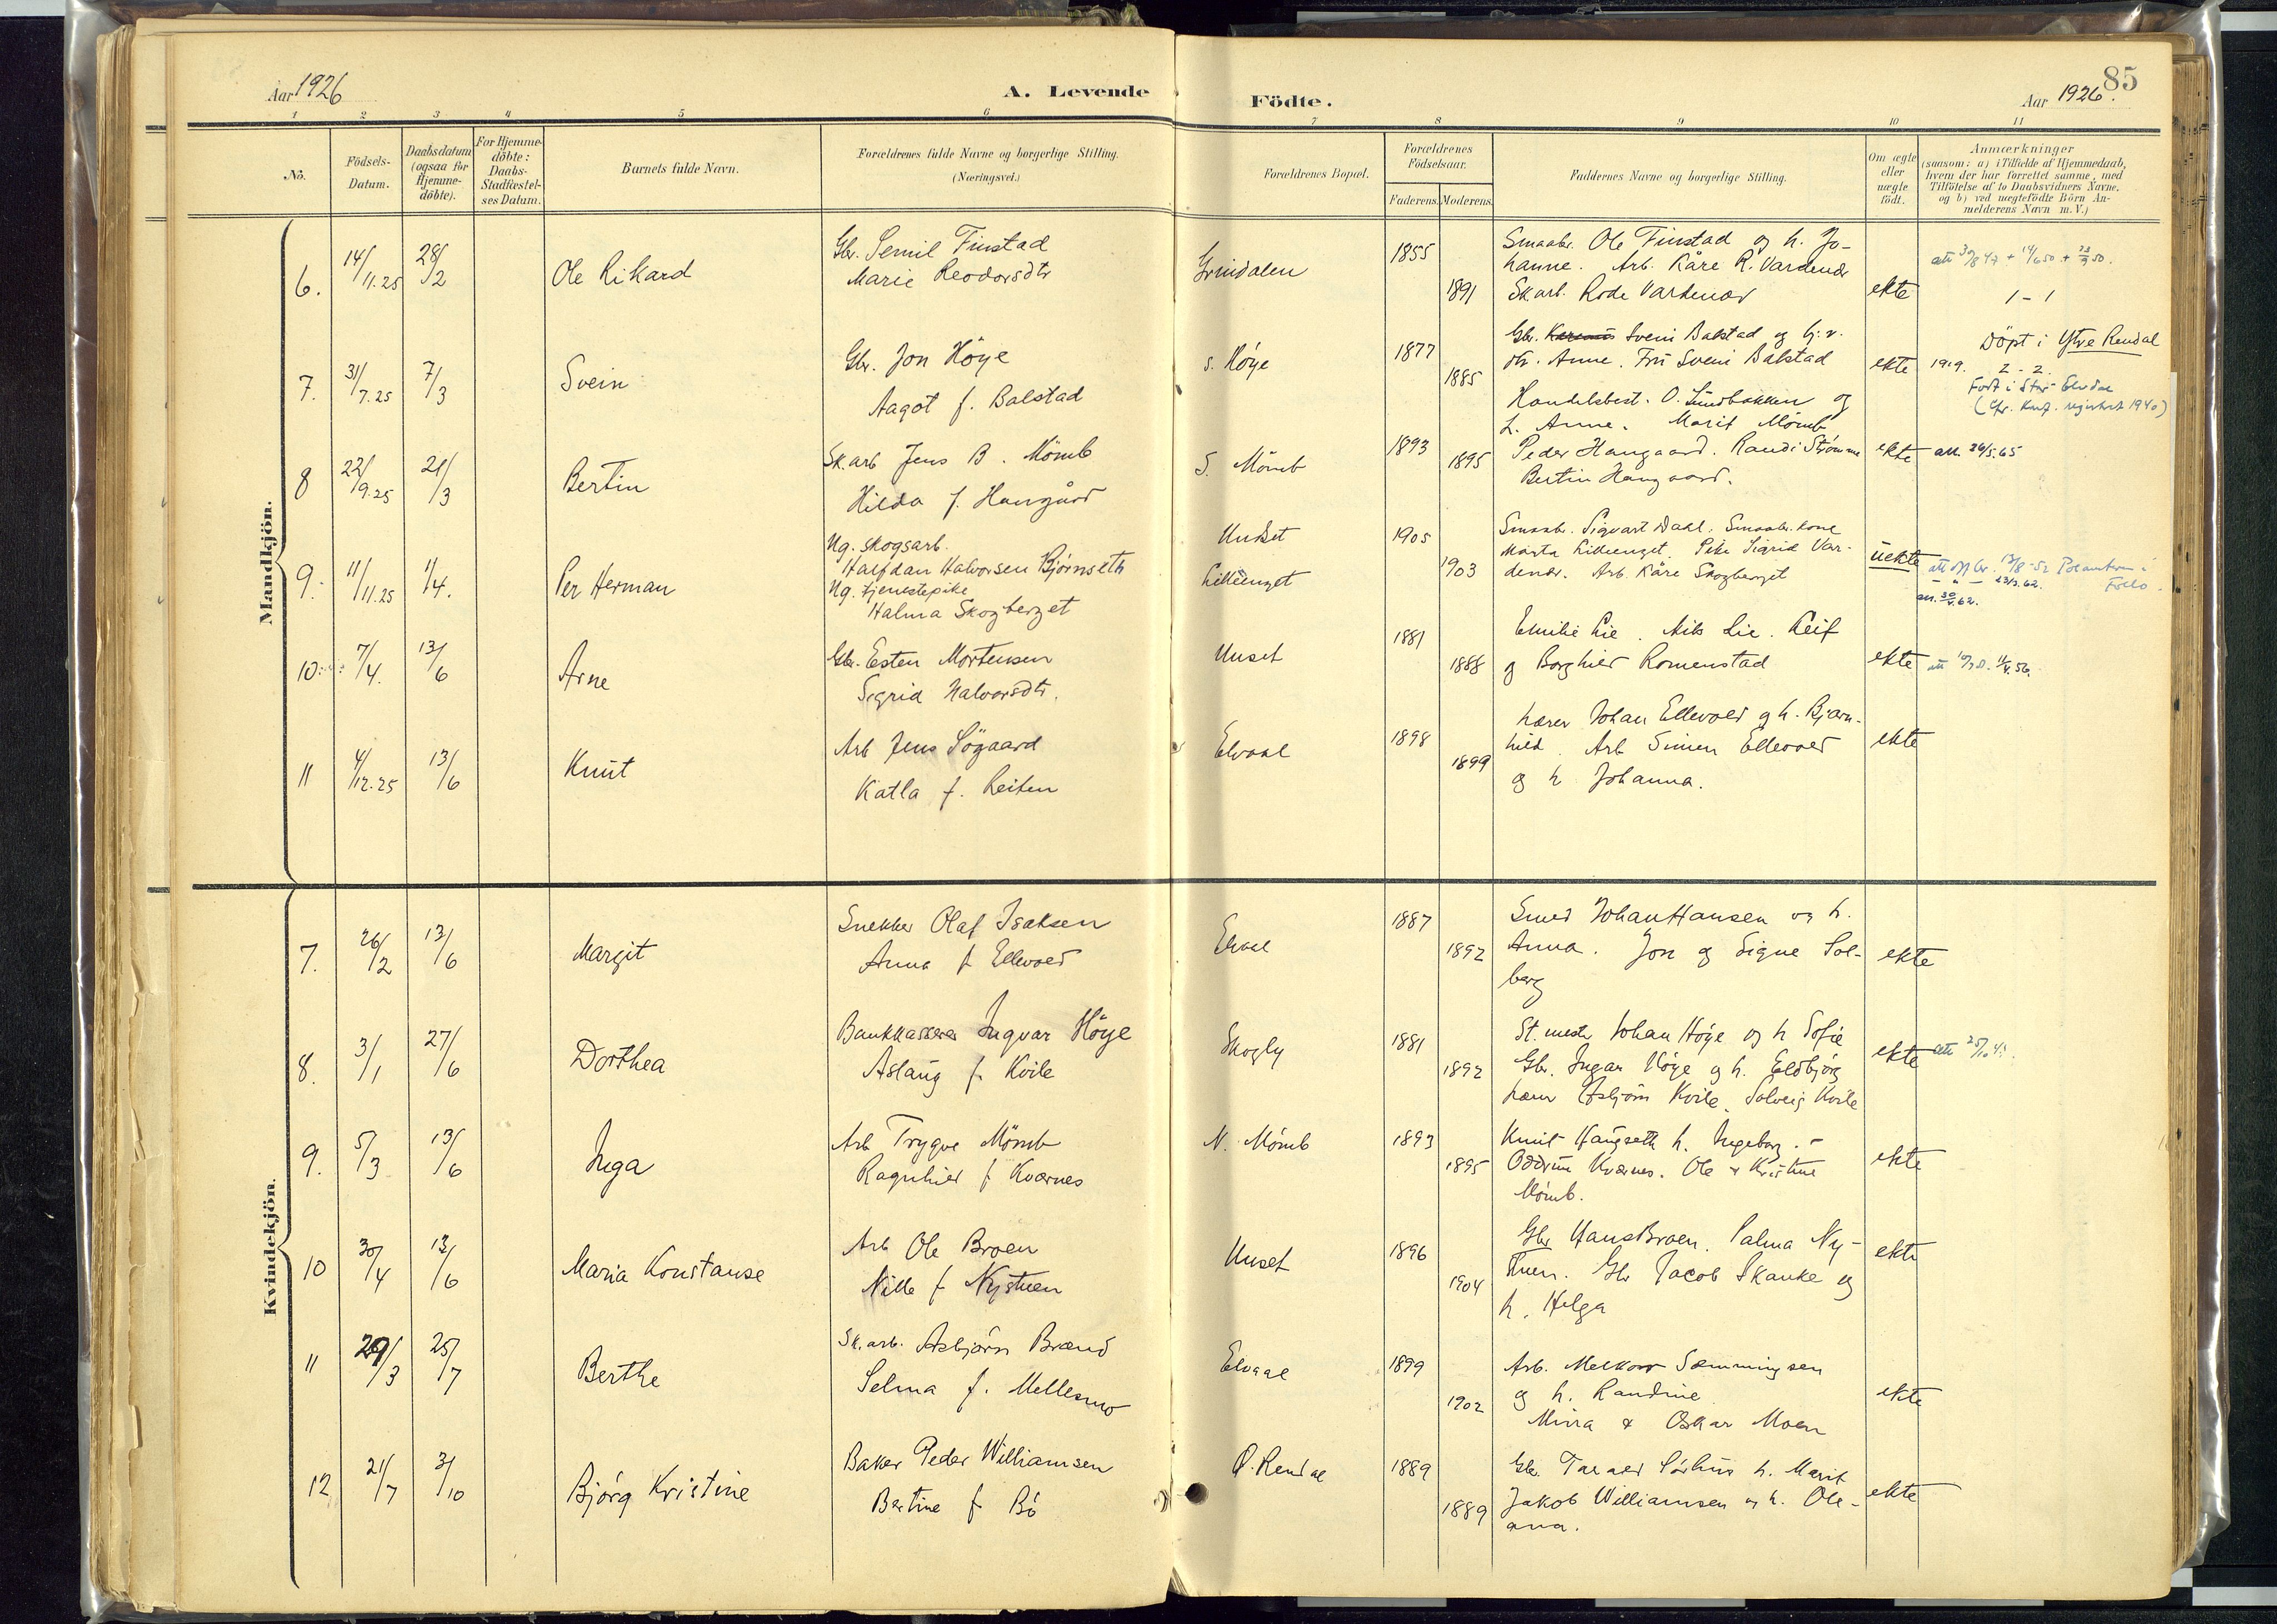 Aar 1926
A. Levende
Födte.
85
Aar 1926.
1 2 3 4 5 6 7 8 9 10 11
No.
Födsels-Datum.
Daabsdatum (ogsaa for Hjemme-döbte).
For Hjemme-döbte: Daabs-Stadfæstel-ses Datum.
Barnets fulde Navn.
Forældrenes fulde Navne og borgerlige Stilling.
(Næringsvei.)
Forældrenes Bopæl.
Forældrenes Födselsaar.
Faderens. Moderens.
Faddernes Navne og borgerlige Stilling.
Om ægte eller uægte födt.
Anmærkninger
(saasom: a) i Tilfælde af Hjemmedaab,
hvem der har forrettet samme, med
Tilföielse af to Daabsvidners Navne,
og b) ved uægtefödte Börn An-
melderens Navn m. V.)
Mandkjön.
6. 14/11.25 28/2 Ole Rikard
Gbr. Semil Finstad
Marie Reodorsdtr
Grindalen 1855 1891
Smaabr. Ole Finstad og h. Jo-
hanne. Arb. Kåre R. Vardenær
Sk.arb. Rode Vardenær
ekte
1 - 1
7. 31/7.25 7/3 Svein
Gbr. Jon Höye
Aagot f. Balstad
S. Höye 1877 1885
Gbr. Svein Balstad og
Anne. Fru Svein Balstad
Handelsbest. O. Lundbakken og
h. Anne. Marit Mömb
ekte
Döpt i Ytre Rendal
1919. 2 - 2.
Født i Stor-Elvdal
8 22/9.25 21/3 Bertin
Sk.arb Jens B. Mömb
Hilda f. Haugård
S. Mömb 1893 1895
Peder Haugaard. Randi Strömme
Bertin Haugaard.
ekte att. 26/5.65
9. 11/11.25 1/4. Per Herman
Ug. skogsarb.
Halfdan Halvorsen Bjørnseth
Ug. tjenestepike
Halma Skogberget
Unset
Lilleenget
1905 1903
Smaabr. Sigvart Dahl. Smaabr. kone
Marta Lilleenget. Pike Sigrid Var-
denær. Arb. Kåre Skogberget
uekte
10. 7/4. 13/6 Arne
Gbr. Esten Mortensen
Sigrid Halvorsdtr.
Unset 1881 1888
Emilie Lie. Nils Lie. Leif
og Borghild Romenstad
ekte
11 4/12.25 13/6 Knut
Arb Jens Sögaard
Katla f. Reiten
Elvaal 1898 1899
Lærer Johan Ellevold og h. Bjarn-
hild. Arb Simen Ellevold
og h Johanna.
ekte
Kvindekjön.
7. 26/2 13/6 Margit
Snekker Olaf Isaksen
Anna f Ellevold
Elvaal 1887 1892
Smed Johan Hansen og h.
Anna. Jon og Signe Sol-
berg
ekte
8. 3/1 27/6 Dorthea
Bankkasserer Ingvar Höye
Aslaug f. Kvile
Skogly 1881 1892
St.mester Johan Höye og h Sofie
Gbr. Ingar Höye og h. Eldbjörg
Lærer Asbjörn Kvile. Solveig Kvile
ekte
9. 5/3 13/6 Inga
Arb Trygve Mömb
Ragnhild f Kværnes
N. Mömb 1893 1895
Knut Haugseth h. Ingeborg. -
Oddrun Kværnes. Ole & Kristine
Mömb.
ekte
10 30/4 13/6 Maria Konstanse
Arb Ole Broen
Nille f Nystuen
Unset 1896 1904
Gbr Hans Broen. Palma Ny-
stuen. Gbr Jacob Skanke og
h. Helga
ekte
11 29/3 25/7 Berthe
Sk.arb. Asbjörn Brænd
Selma f. Mellesmo
Elvaal 1899 1902
Arb. Melkior Sæmmingsen
og h. Randine
Mina & Oskar Moen
ekte
12 21/7 3/10 Björg Kristine
Baker Peder Williamsen
Bertine f Bö
Ö. Rendal 1889 1889
Gbr. Tarald Sörhus h. Marit
Jakob Williamsen og h. Ole-
ana.
ekte